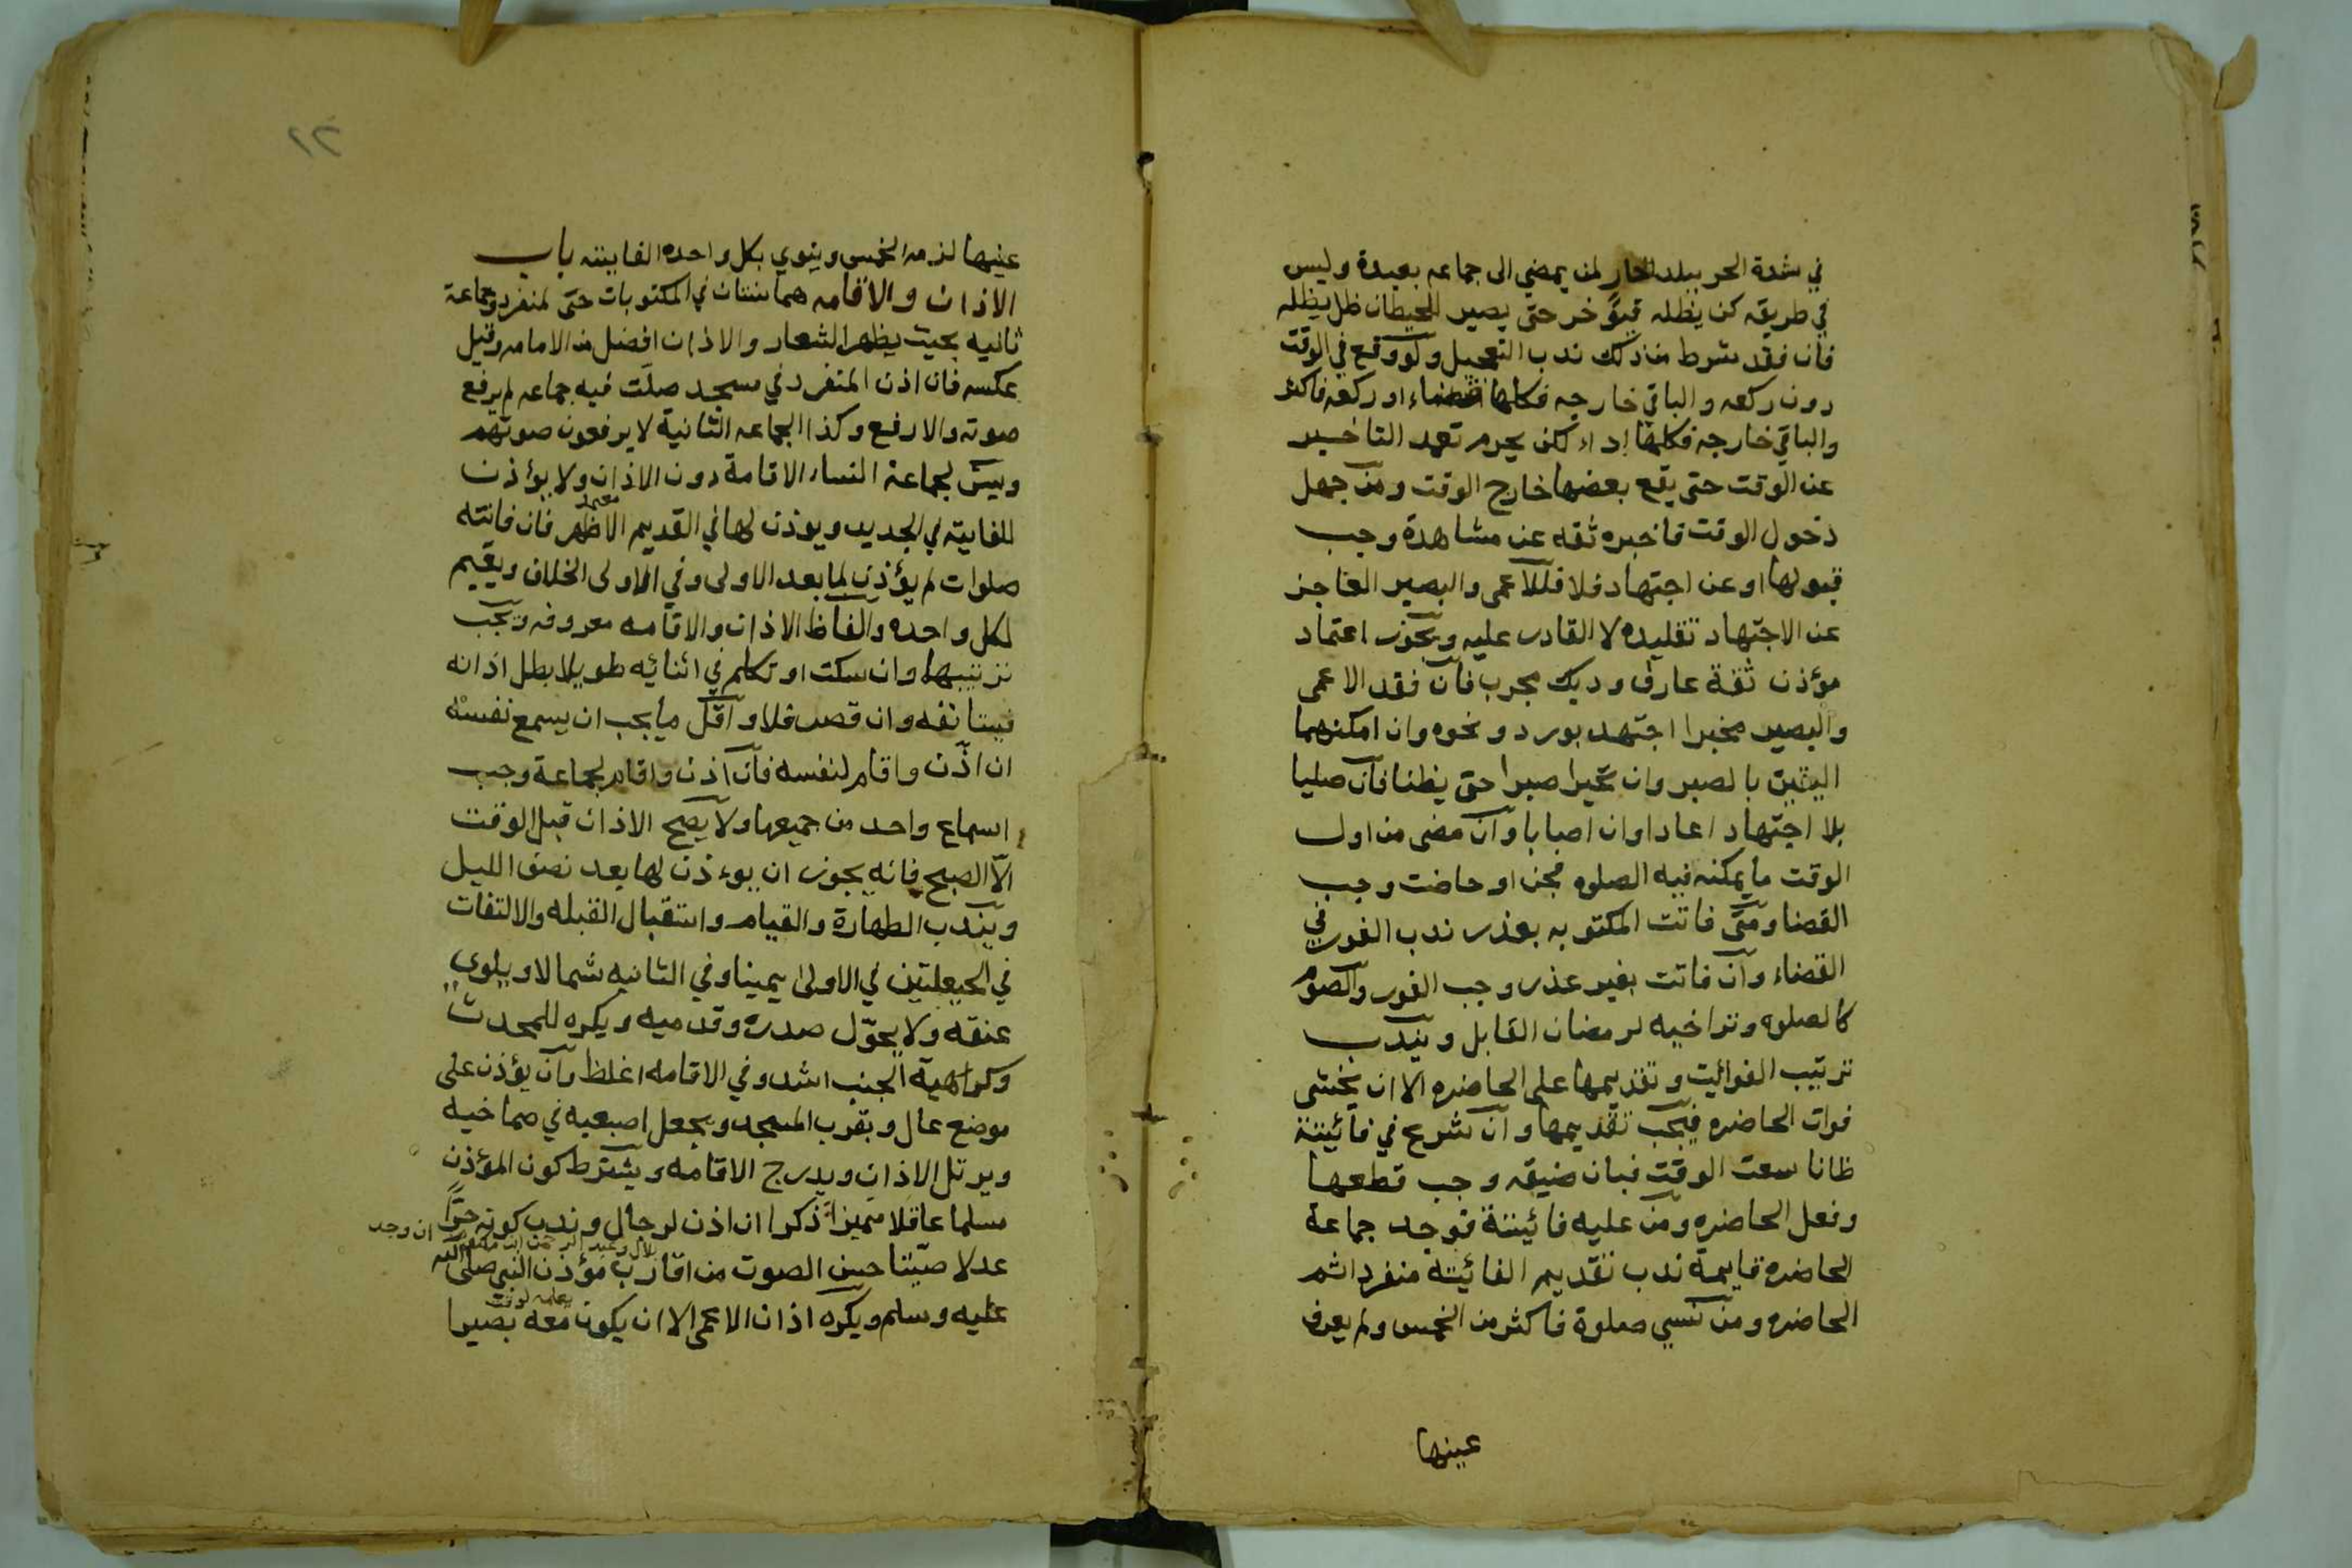 في شدة الحر ببلد الحار لمن يمضي الى جماعه بعيدة وليس
في طريقه كن يظله فيؤخر حتى يصير للحيطان ظل يظله
فان فقد شرط من ذلك ندب التعجيل ولو وقع في الوقت
دون ركعه والباقي خارجه فكلها قضاء او ركعه فاكثر
والباقي خارجه فكلها اداء لكن يحرم تعمد التاخير
عن الوقت حتى يقع بعضها خارج الوقت ومن جهل
دخول الوقت فاخبره ثقه عن مشاهدة وجب
قبولها او عن اجتهاد فلا فللاعمى والبصير العاجز
عن الاجتهاد تقليده لا القادر عليه ويجوز اعتماد
مؤذن ثقة عارف وديك مجرب فان فقد الاعمى
والبصير مخبرا اجتهد بورد ونحوه وان امكنهما
اليقين بالصبر وان تحيرا صبرا حتى يظنا فان صليا
بلا اجتهاد اعادا وان اصابا وان مضى من اول
الوقت ما يمكنه فيه الصلوه فجن او حاضت وجب
القضا ومتى فاتت المكتوبه بعذر ندب الفور في
القضاء وان فاتت بغير عذر وجب الفور والصوم
كالصلوه وتراخيه لرمضان القابل ويندب
ترتيب الفوائت وتقديمها على الحاضره الا ان يخشى
فوات الحاضره فيجب تقديمها وان شرع في فائيتة
ظانا سعت الوقت فبان ضيقه وجب قطعها
وفعل الحاضره ومن عليه فائيتة فوجد جماعة
الحاضره قايمة ندب تقديم الفائيته منفردا ثم
الحاضره ومن نسي صلوة فاكثر من الخمس ولم يعرف
عينها
١٢
عينها لزمه الخمس وينوي بكل واحده الفايته باب
الاذان والاقامه هما سنتان في المكتوبات حتى لمنفرد وجماعة
ثانيه بحيث يظهر الشعار والاذان افضل من الامامه وقيل
عكسه فان اذن المنفرد في مسجد صلت فيه جماعه لم يرفع
صوته والا رفع وكذا الجماعه الثانية لا يرفعون صوتهم
ويسن لجماعة النساء الاقامة دون الاذان ولا يؤذن
معتمد
للفايته في الجديد ويوذن لها في القديم الاظهر فان فاتته
صلوات لم يؤذن لما بعد الاولى وفي الاولى الخلاف ويقيم
لكل واحده والفاظ الاذان والاقامه معروفه ويجب
ترتيبها وان سكت او تكلم في اثنائيه طويلا بطل اذانه
فيستانفه وان قصر فلا واقل ما يجب ان يسمع نفسه
ان اذن واقام لنفسه فان اذن واقام لجماعة وجب
اسماع واحد من جميعها ولا يصح الاذان قبل الوقت
الا الصبح فانه يجوز ان يوءذن لها بعد نصف الليل
ويندب الطهارة والقيام واستقبال القبله والالتفات
في الحيعلتين في الاولى يمينا وفي الثانيه شمالا ويلوي
عنقه ولا يحول صدره وقدميه ويكره للمحدث
وكراهية الجنب اشد وفي الاقامه اغلظ وان يؤذن على
موضع عال وبقرب المسجد ويجعل اصبعيه في صماخيه
ويرتل الاذان ويدرج الاقامه ويشترط كون المؤذن
مسلما عاقلا مميزا ذكرا ان اذن لرجال وندب كونه حرا
ان وجد
عدلا صيتا حسن الصوت من اقارب مؤذن النبي صلى الله
عليه وسلم ويكره اذان الاعمى الا ان يكون معه بصيرا